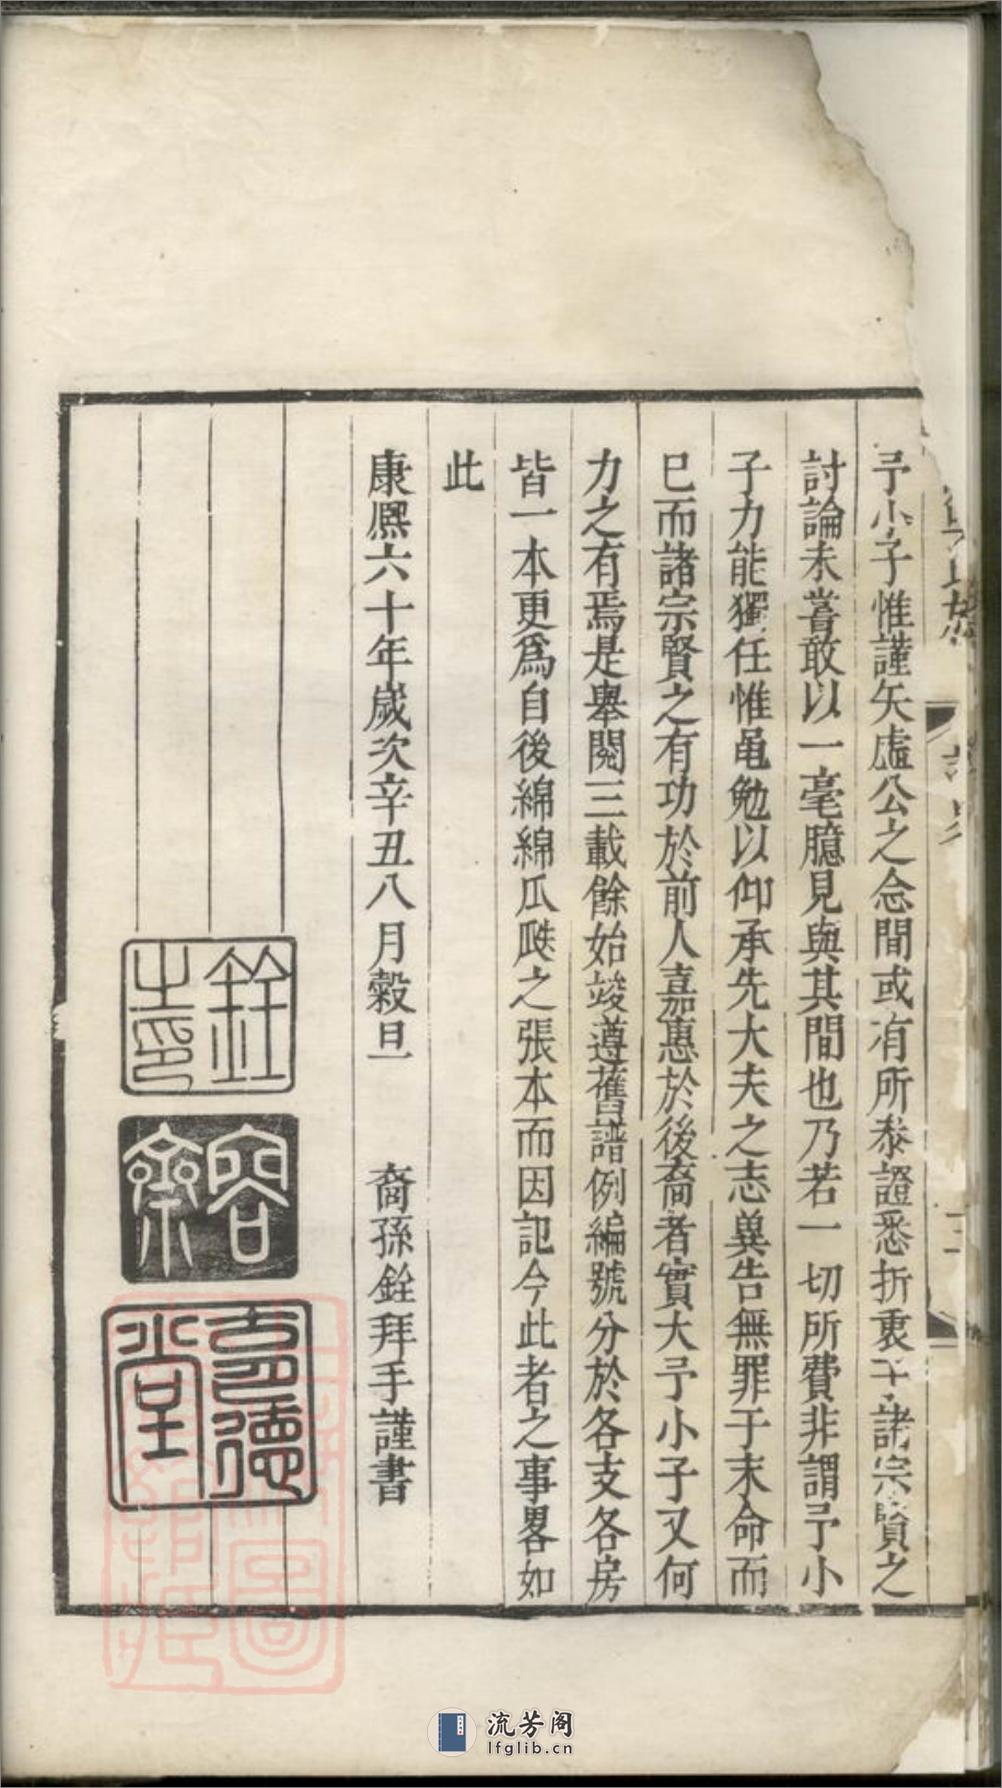 予小子惟謹矢虛公之念間或有所叅證悉折衷于諸宗賢之
討論未嘗敢以一毫臆見與其間也乃若一切所費非謂予小
子力能獨任惟黽勉以仰承先大夫之志兾告無罪于末命而
已而諸宗賢之有功於前人嘉惠於後裔者實大予小子又何
力之有焉是舉閱三載餘始竣遵舊譜例編號分於各支各房
皆一本更爲自後綿綿瓜瓞之張本而因記今此者之事畧如
此
康熈六十年歲次辛丑八月穀旦　裔孫銓拜手謹書
銓之印
容齋
世德堂
流芳阁
lfglib.cn